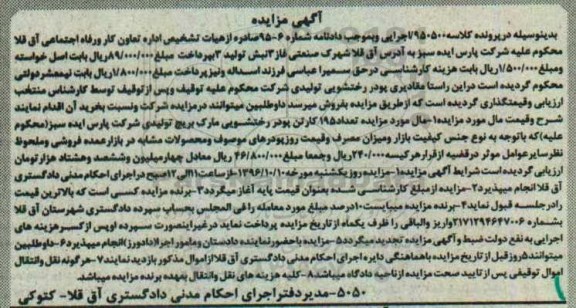 آگهی مزایده
بدینوسیله در پرونده کلاسه ۹۵۰۵۰۰/اجرایی وبموجب دادنامه شماره ۶-۹۵صادره ازهیات تشخیص اداره تعاون کار ورفاه اجتماعی آق قلا
محکوم علیه شرکت پارس ایده سبز به آدرس آق قلا شهرک صنعتی فاز۳نبش تولید ۳بپرداخت مبلغ ۸۹/۰۰۰/۰۰۰ریال بابت اصل خواسته
ومبلغ ۱/۵۰۰/۰۰۰ریال بابت هزینه کارشناسی درحق سمیرا عباسی فرزند اسداله ونیز پرداخت مبلغ ۱/۸۰۰/۰۰۰ریال بابت نیمعشردولتی
محکوم گردیده است دراین راستا مقادیری پودر رختشویی تولیدی شرکت محکوم علیه توقیف وپس ازتوقیف توسط کارشناس منتخب
ارزیابی وقیمتگذاری گردیده است که ازطریق مزایده بفروش میرسد داوطلبین میتوانند درمزایده شرکت ونسبت بخرید آن اقدام نمایند
شرح وقیمت مال مورد مزایده۱-مال مورد مزایده تعداد۱۹۵ کارتن پودر رختشویی مارک بریج تولیدی شرکت پارس ایده سبز(محکوم
علیه)که باتوجه به نوع جنس کیفیت بازار ومیزان مصرف وقیمت روزپودرهای موصوف ومحصولات مشابه در بازارعمده فروشی وملحوظ
نظرسایرعوامل موثر درقضیه ازقرار هرکیسه۲۴۰/۰۰۰ریال وجمعا مبلغ ۴۶/۸۰۰/۰۰۰ریال معادل چهارمیلیون وششصد وهشتاد هزارتومان
ارزیابی گردیده است شرایط آگهی مزایده:۱-مزایده روز یکشنبه مورخه ۱۳۹۶/۱۰/۱۰ ازساعت ۱۱الی ۱۲صبح دراجرای احکام مدنی دادگستری
آق قلا انجام میپذیرد۲-مزایده ازمبلغ کارشناسی شده بعنوان قیمت پایه آغاز میگردد۳-برنده مزایده کسی است که بالاترین قیمت
رادرجلسه قبول نماید۴-برنده مزایده میبایست۱۰درصد مبلغ مورد معامله را فی المجلس بحساب سپرده دادگستری شهرستان آق قلا
بشماره ۲۱۷۱۲۹۴۶۴۷۰۰۶واریز والباقی را ظرف یکماه ازتاریخ مزایده پرداخت نماید درغیراینصورت سپرده اوپس ازکسرهزینه های
اجرایی به نفع دولت ضبط وآگهی مزایده تجدید میگردد۵-مزایده باحضورنماینده دادستان ومامور اجرا(دادورز)انجام میپذیرد۶-داوطلبین
میتوانند۵روزقبل از تاریخ مزایده باهماهنگی دایره اجرای احکام مدنی دادگستری آق قلا ازاموال مذکور بازدید نمایند۷-هرگونه نقل وانتقال
اموال توقیفی پس از تایید صحت مزایده ازناحیه دادگاه میباشد۸-کلیه هزینه های نقل وانتقال بعهده برنده مزایده میباشد.
۵۰۵۰-مدیردفتراجرای احکام مدنی دادگستری آق قلا- کتوکی